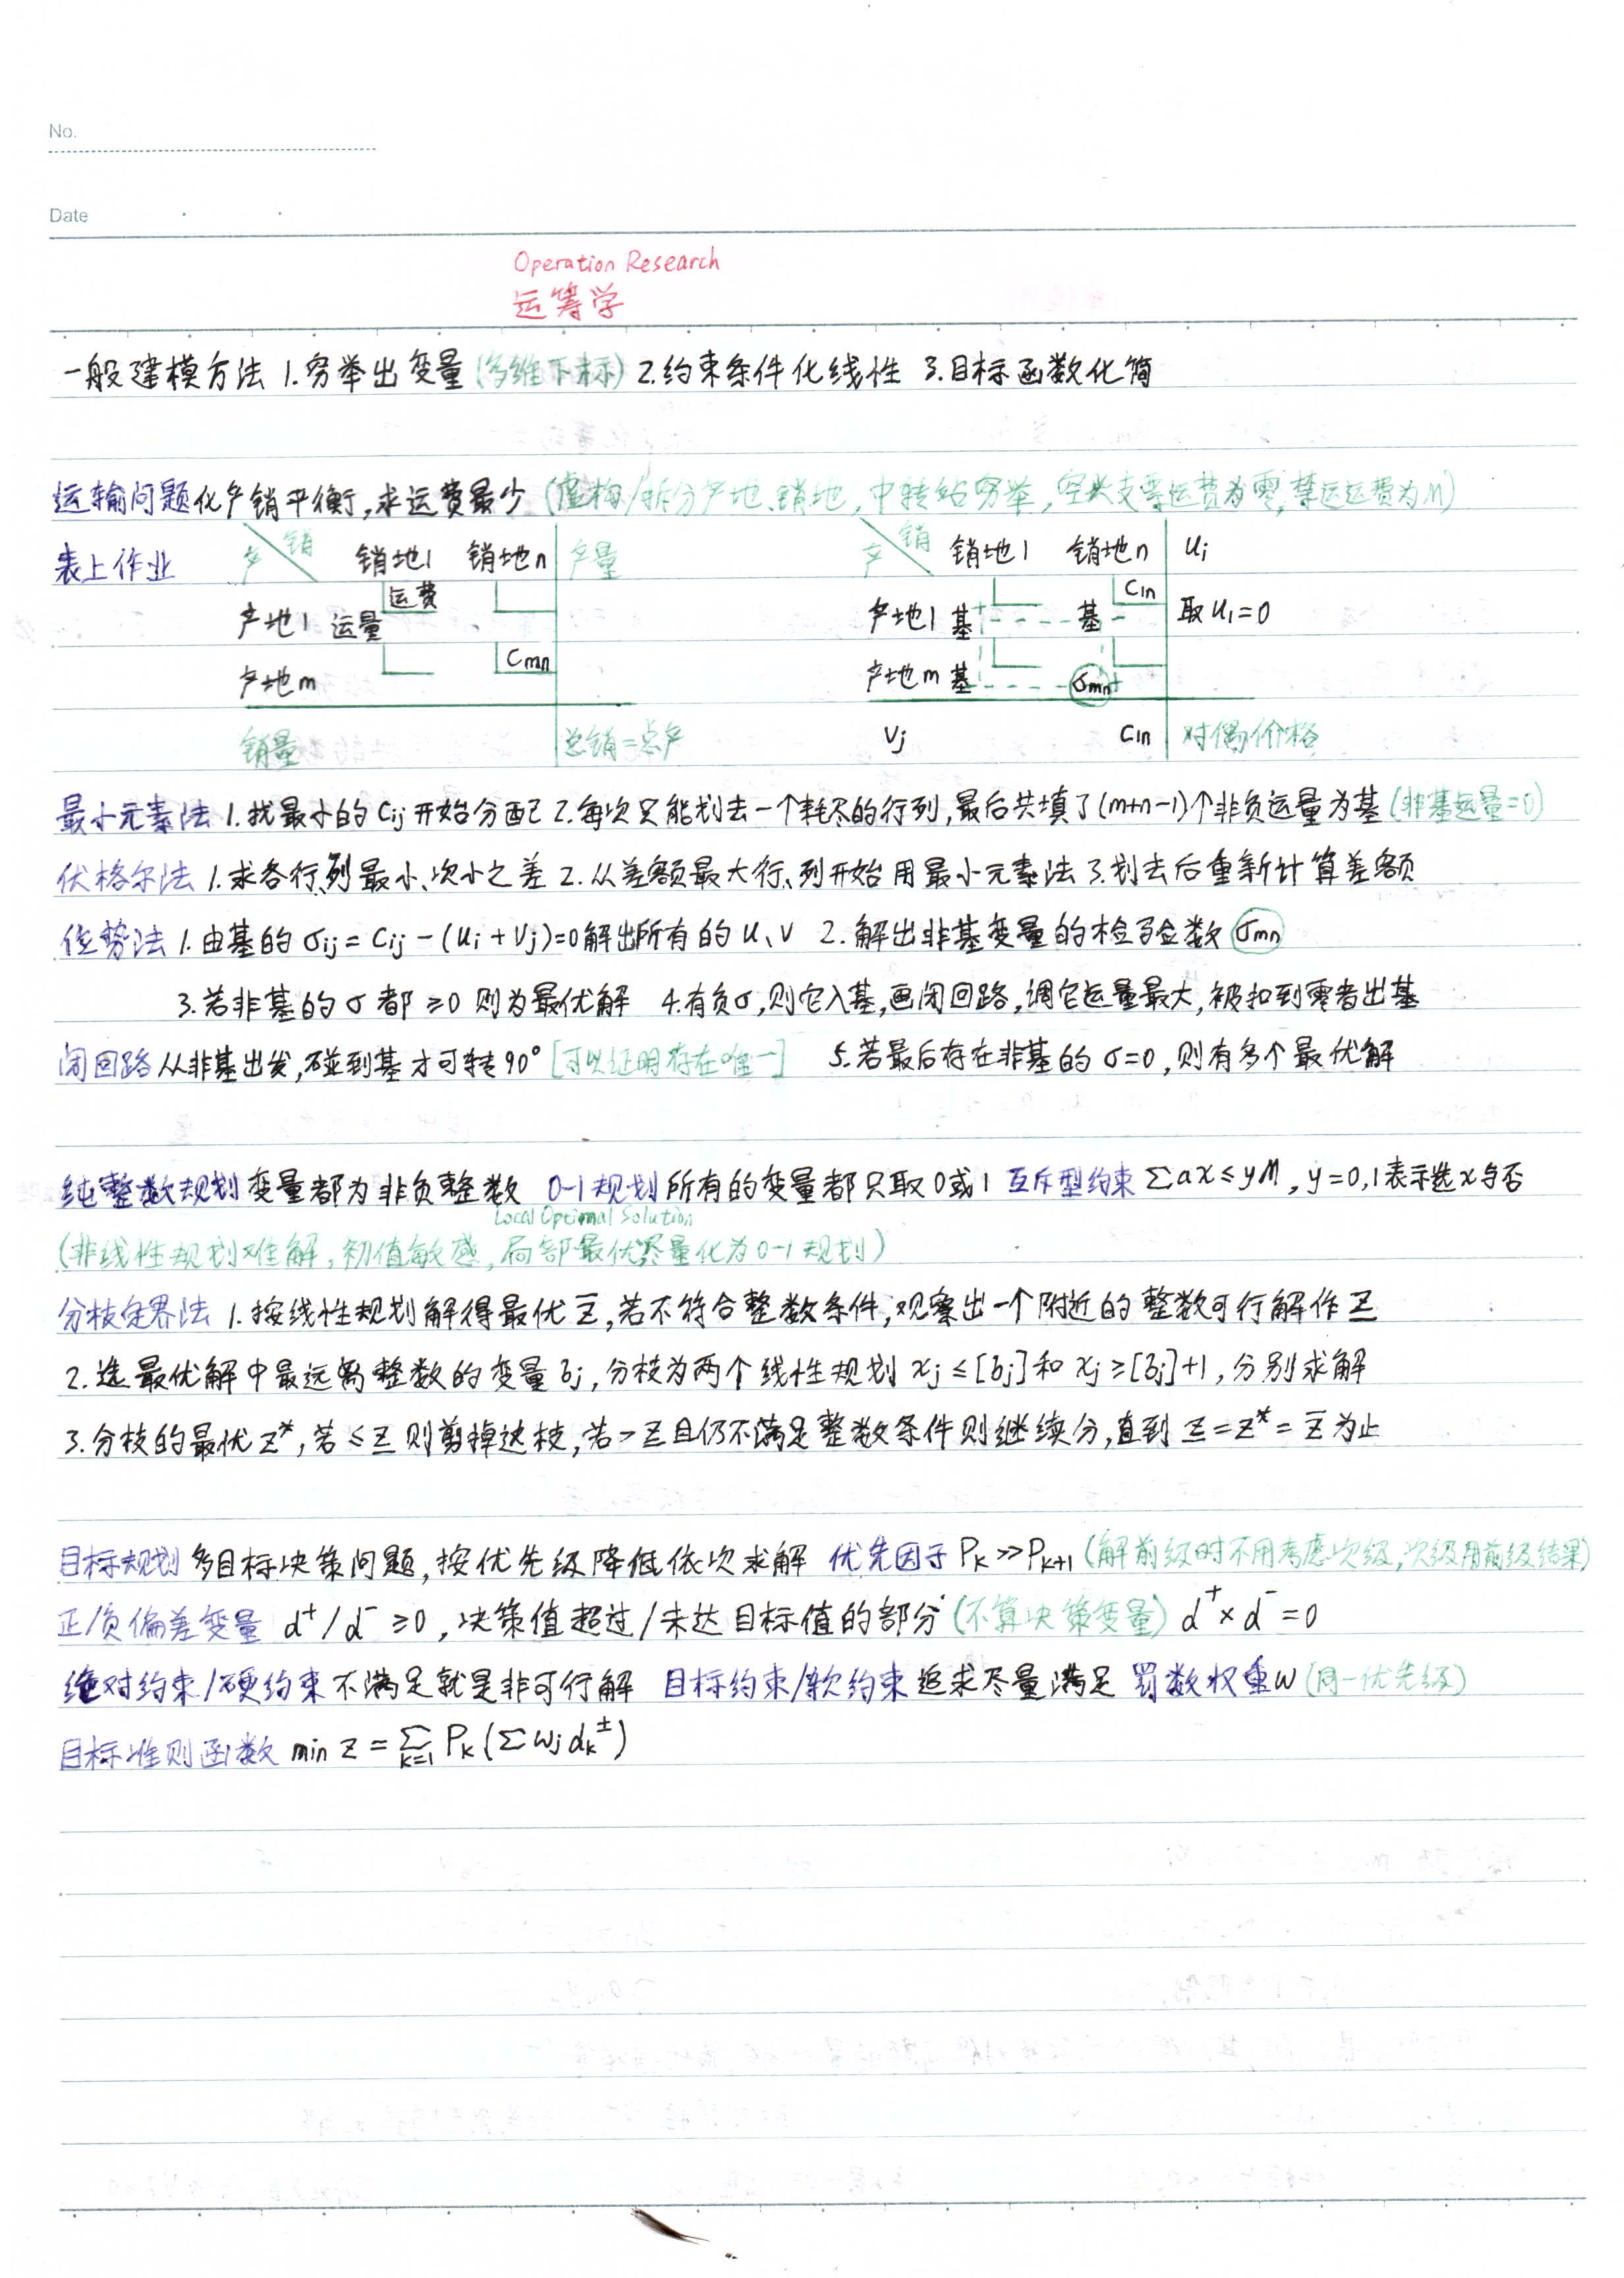 No.
Date
Operation Research
运筹学
一般建模方法 1.穷举出变量(多维下标) 2.约束条件化线性 3.目标函数化简
运输问题化产销平衡,求运费最少(虚构/拆分产地、销地,中转站穷举,空头支票运费为零,禁运运费为M)
表上作业 产 销 销地1 销地n 产量 产 销 销地1 销地n ui
运费 C1n
产地1 运量 产地1 基 + - 基 - 取 u1=0
Cmn
产地m 产地m 基 - σmn +
销量 总销=总产 Vj C1n 对偶价格
最小元素法 1.找最小的Cij开始分配 2.每次只能划去一个耗尽的行列,最后共填了(m+n-1)个非负运量为基(非基运量=0)
伏格尔法 1.求各行、列最小、次小之差 2.从差额最大行、列开始用最小元素法 3.划去后重新计算差额
位势法 1.由基的σij=Cij-(ui+Vj)=0解出所有的u、v 2.解出非基变量的检验数σmn
3.若非基的σ都≥0则为最优解 4.有负σ,则它入基,画闭回路,调它运量最大,被扣到零者出基
闭回路 从非基出发,碰到基才可转90°[可以证明存在唯一] 5.若最后存在非基的σ=0,则有多个最优解
纯整数规划 变量都为非负整数 0-1规划 所有的变量都只取0或1 互斥型约束 Σax≤yM, y=0,1表示选x与否
Local Optimal Solution
(非线性规划难解,初值敏感,局部最优尽量化为0-1规划)
分枝定界法 1.按线性规划解得最优z̄,若不符合整数条件,观察出一个附近的整数可行解作z̲
2.选最优解中最远离整数的变量bj,分枝为两个线性规划xj≤[bj]和xj≥[bj]+1,分别求解
3.分枝的最优z*,若≤z̲则剪掉这枝,若>z̲且仍不满足整数条件则继续分,直到z̲=z*=z̄为止
目标规划 多目标决策问题,按优先级降低依次求解 优先因子 Pk≫Pk+1(解前级时不用考虑次级,次级用前级结果)
正/负偏差变量 d⁺/d⁻≥0,决策值超过/未达目标值的部分(不算决策变量) d⁺×d⁻=0
绝对约束/硬约束 不满足就是非可行解 目标约束/软约束 追求尽量满足 罚数权重W(同一优先级)
目标准则函数 min z=Σk=1 Pk(Σwjdk±)